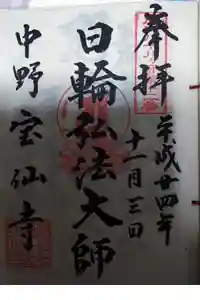 奉拝
平成廿四年
十一月三日
日輪弘法大師
中野宝仙寺